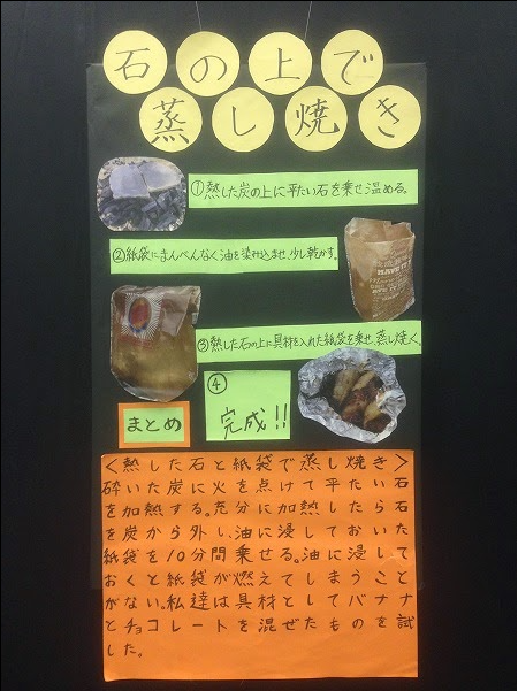 石の上で
蒸し焼き
①熱した炭の上に平たい石を乗せ温める。
②紙袋にまんべんなく油を染み込ませ、少し乾かす。
HAVE IT
③熱した石の上に具材を入れた紙袋を乗せ、蒸し焼く
④
完成!!
まとめ
<熱した石と紙袋で蒸し焼き>
砕いた炭に火を点けて平たい石
を加熱する。充分に加熱したら石
を炭から外し、油に浸しておいた
紙袋を10分間乗せる。油に浸して
おくと紙袋が燃えてしまうこと
がない。私達は具材としてバナナ
とチョコレートを混ぜたものを試
した。